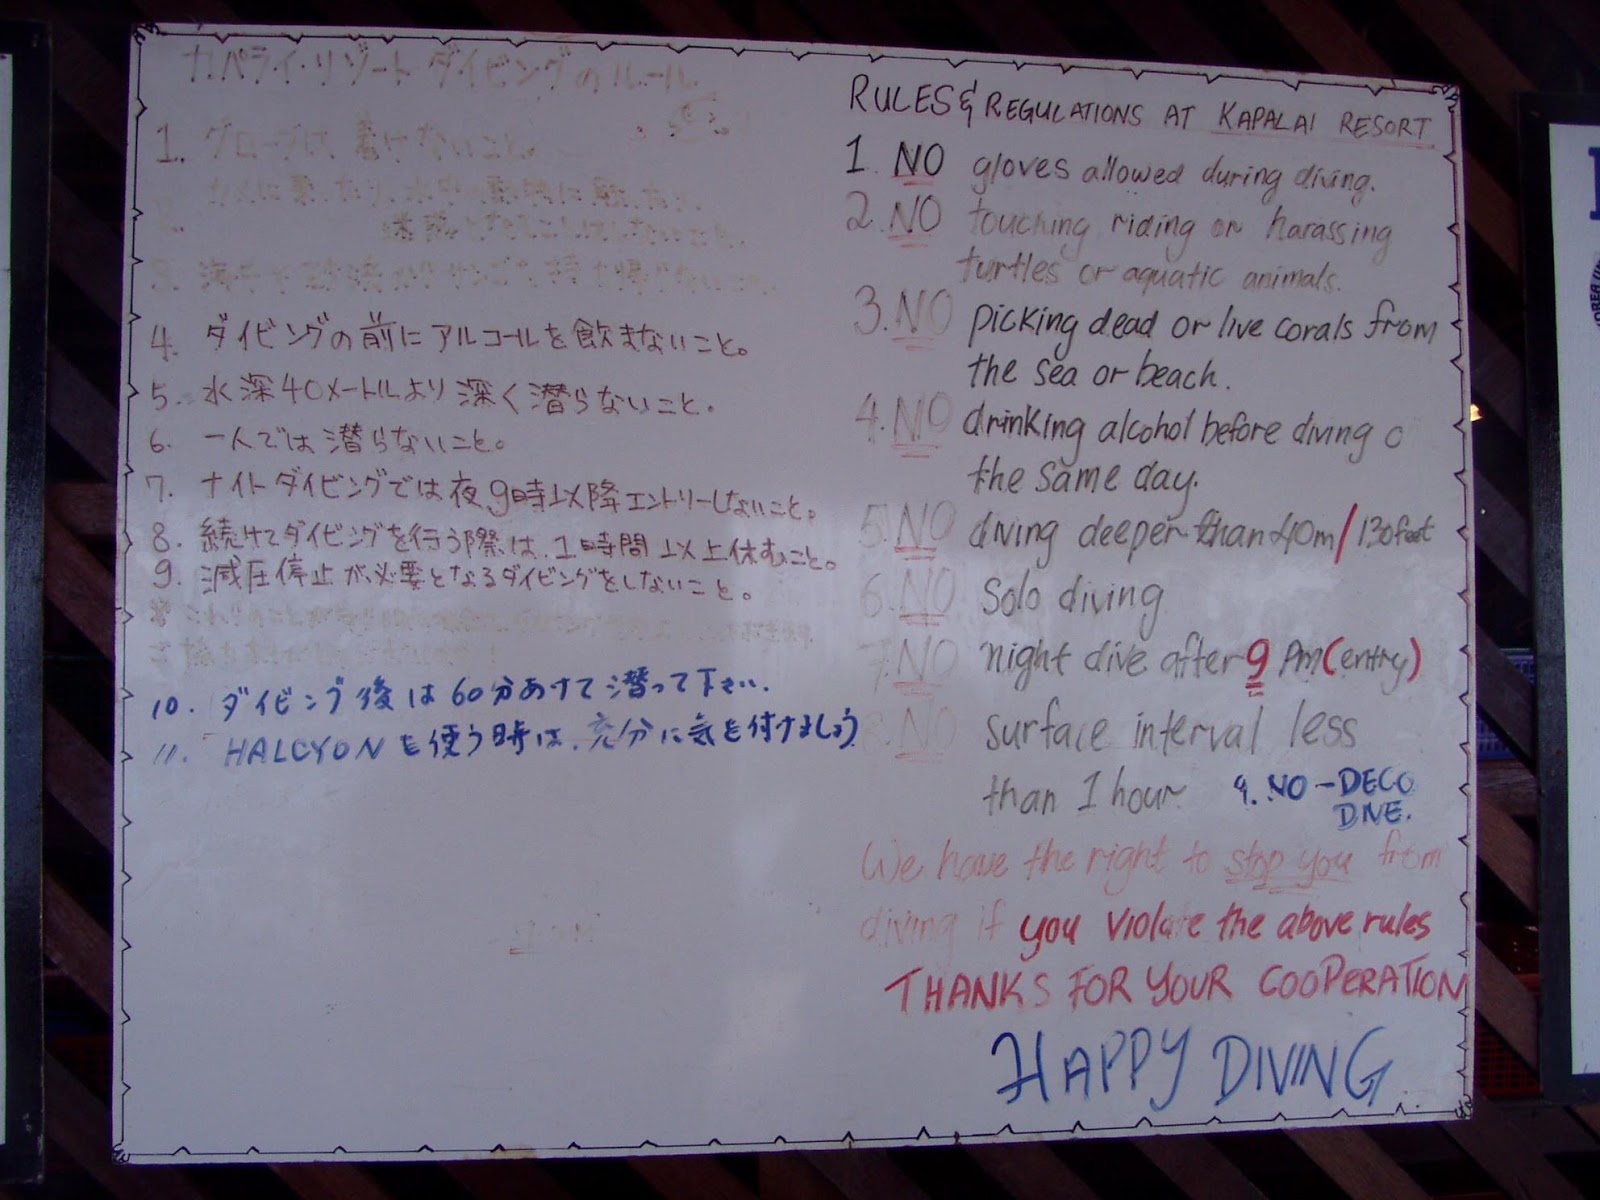 カパライ・リゾート ダイビングのルール
1. グローブは、着けないこと。
カメに乗ったり、水中
3.
4. ダイビングの前にアルコールを飲まないこと。
5. 水深40メートルより深く潜らないこと.
6. 一人では潜らないこと。
7. ナイトダイビングでは夜9時以降エントリーしないこと。
8. 続けてダイビングを行う際は、1時間以上休むこと。
9. 減圧停止が、必要となるダイビングをしないこと。
10. ダイビング後は60分あけて潜って下さい.
11. HALCYONを使う時は、充分に気を付けましょう
RULES & REGULATIONS AT KAPALAI RESORT
1. NO gloves allowed during diving.
2. NO touching riding or harassing
turtles or aquatic animals.
3. NO picking dead or live corals from
the sea or beach.
4. NO drinking alcohol before diving o
the same day.
5. NO diving deeper than 40m/130feet
6. NO solo diving
7. NO night dive after 9 Pm (entry)
8. NO surface interval less
than 1 hour 9. NO-DECO
DIVE.
We have the right to stop you from
diving if you violate the above rules
THANKS FOR YOUR COOPERATION
HAPPY DIVING